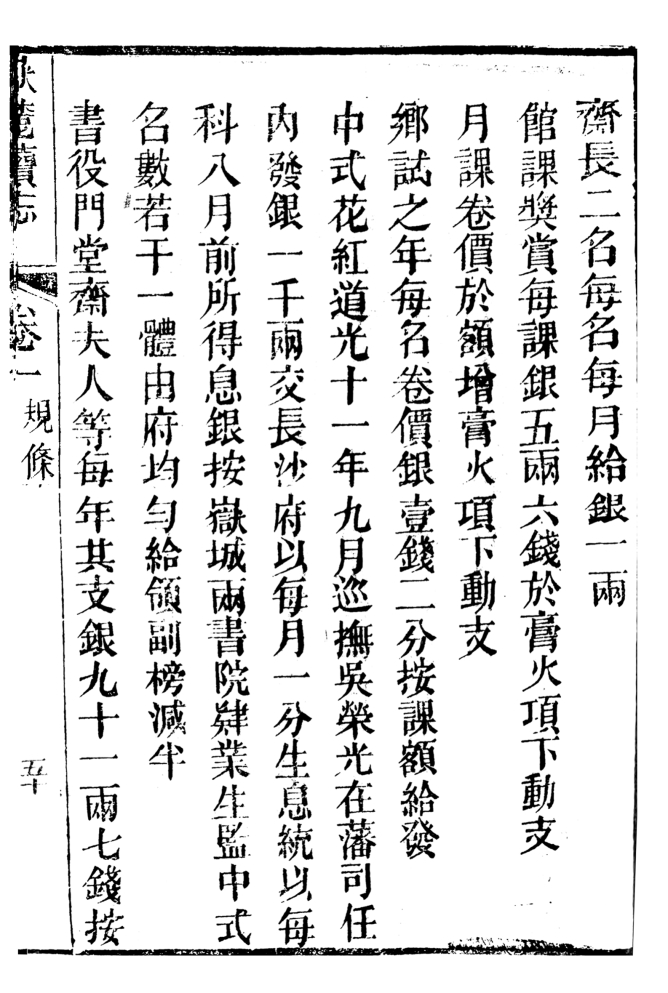 齋長二名每名每月給銀一兩
館課獎賞每課銀五兩六錢於膏火項下動支
月課卷價於額增膏火項下動支
鄉試之年每名卷價銀壹錢二分按課額給發
中式花紅道光十一年九月巡撫吳榮光在藩司任
內發銀一千兩交長沙府以每月一分生息統以每
科八月前所得息銀按嶽城兩書院肄業生監中式
名數若干一體由府均勻給領副榜減半
書役門堂齋夫人等每年其支銀九十一兩七錢按
麓續志
卷一
規條
五十